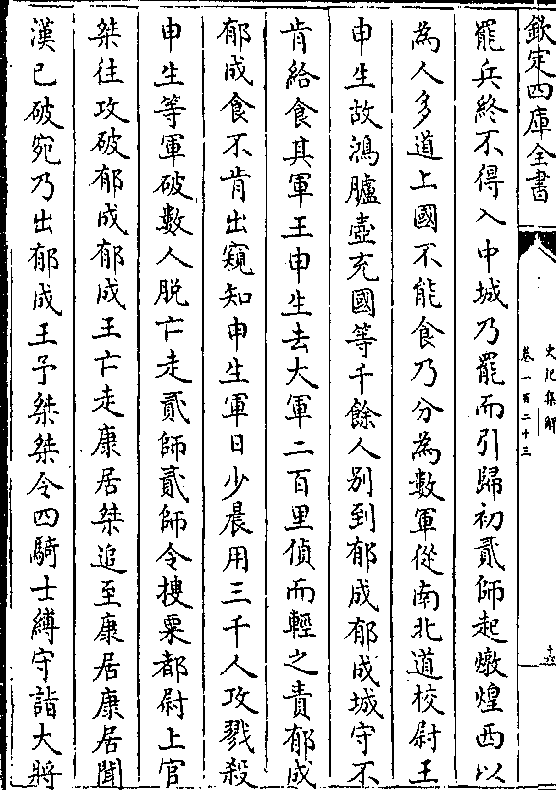 欽定四庫全書
史記集解
卷一百二十三
罷兵終不得入中城乃罷而引歸初貳師起燉煌西以
為人多道上國不能食乃分為數軍從南北道校尉王
申生故鴻臚壺充國等千餘人别到郁成郁成城守不
肯給食其軍王申生去大軍二百里偵而輕之責郁成
郁成食不肯出窺知申生軍日少晨用三千人攻戮殺
申生等軍破數人脱亡走貳師貳師令搜粟都尉上官
桀往攻破郁成郁成王亡走康居桀追至康居康居聞
漢已破宛乃出郁成王予桀桀令四騎士縛守詣大將